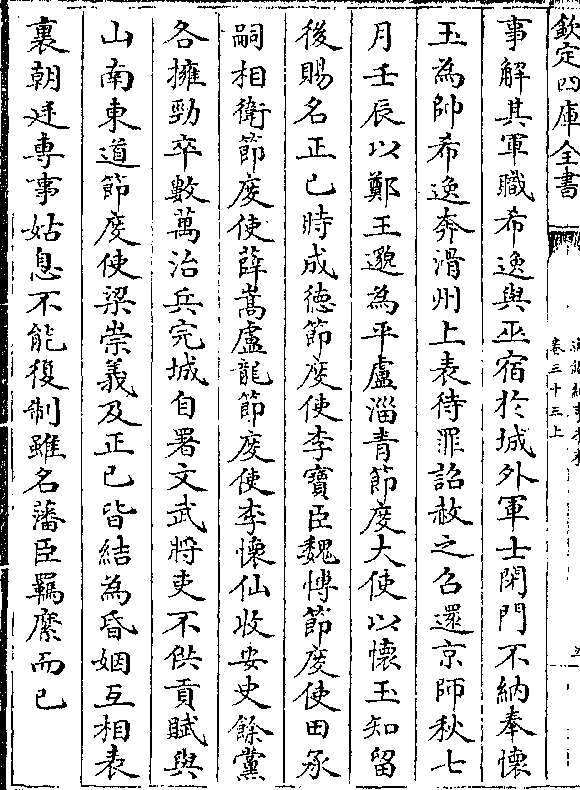 欽定四庫全書
卷三十三上
事解其軍職希逸與巫宿於城外軍士閉門不納奉懷
玉為帥希逸奔滑州上表待罪詔赦之召還京師秋七
月壬辰以鄭王邈為平盧淄青節度大使以懷玉知留
後賜名正已時成德節度使李寶臣魏博節度使田承
嗣相衛節度使薛嵩盧龍節度使李懷仙收安史餘黨
各擁勁卒數萬治兵完城自署文武將吏不供貢賦與
山南東道節度使梁崇義及正已皆結為昏姻互相表
裏朝廷專事姑息不能復制雖名藩臣羈縻而已